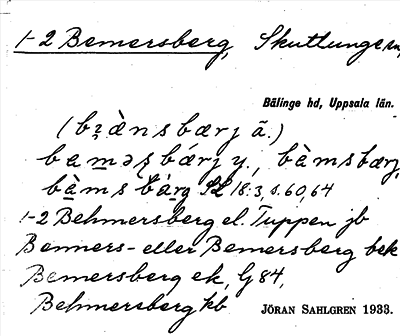 1-2 Bemersberg, Skuttunge sn,
Bälinge hd, Uppsala län.
(bɛ̀nsbærj ã.)
bemǝʂbǽrj y., bàmsbærj,
bàmsbárg SL 18:3, s. 60, 64
1-2 Behmersberg el. Tuppen jb
Benners- eller Bemersberg bek
Bemersberg ek, G 84,
Behmersberg kb
JÖRAN SAHLGREN 1933.